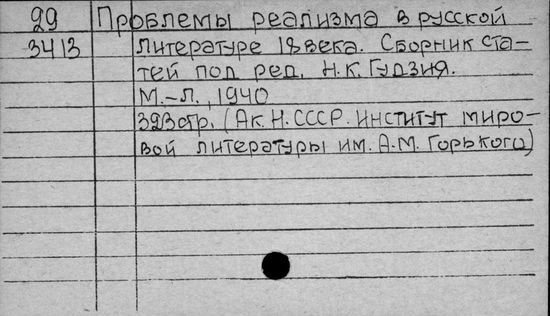 29 Проблемы реализма в русской
3413 литературе 18 века. Сборник ста-
тей под ред. Н.К. Гудзия.
М.-Л., 1940
323стр. (Ак. Н. СССР. Институт миро-
вой литературы им. А.М. Горького)